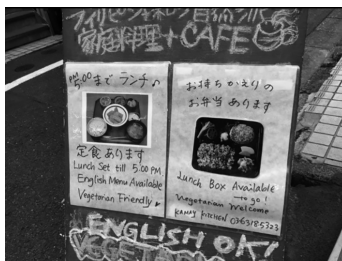 家庭料理+CAFE
PM 5:00まで ランチ♪
定食あります
Lunch Set till 5:00 PM
English Menu Available
Vegetarian Friendly
お持ちかえりの
お弁当あります
Lunch Box Available
to go!
Vegetarian Welcome
KAMAY KITCHEN 0363185323
ENGLISH OK!
VEGETARIAN